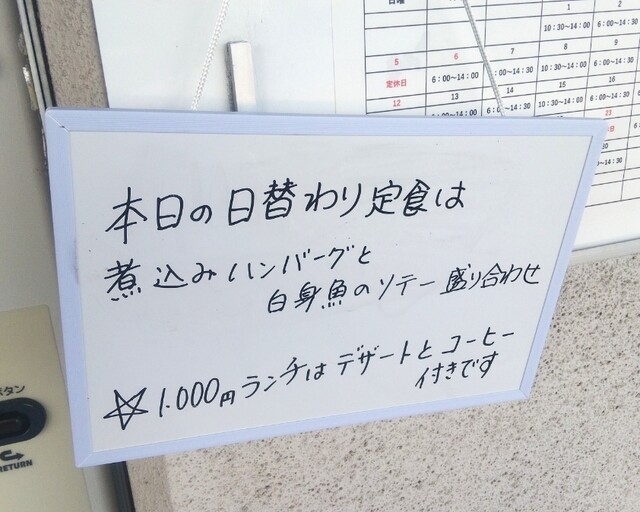 日曜
1
2
10:30~14:00
6:00~14:00
5
6
7
8
9
定休日
6:00~14:00
6:00~14:30
10:30~14:00
6:00~14:00
12
13
14
15
16
本日の日替わり定食は
煮込みハンバーグと
白身魚のソテー盛り合わせ
☆1.000円ランチはデザートとコーヒー
付きです
タン
RETURN